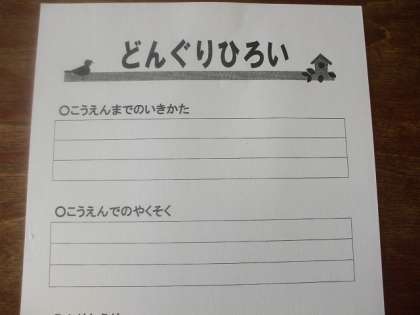 どんぐりひろい
○こうえんまでのいきかた
○こうえんでのやくそく